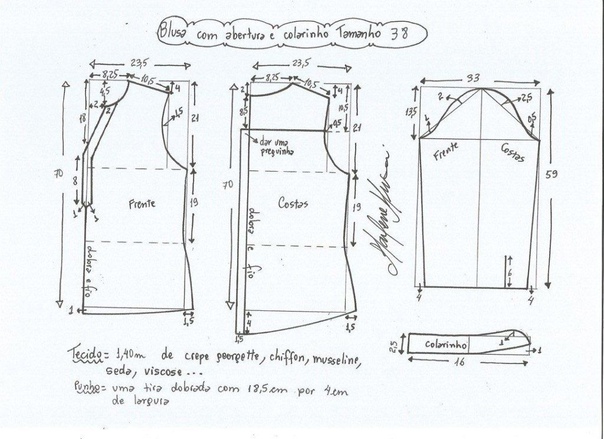 Blusa com abertura e colarinho Tamanho 38
23,5
8,25
10,5
4
4,5
2
2
1,5
18
21
8
70
Frente
19
1
1
dobra e fio
1
1,5
23,5
8,25
10,5
4
2
8,5
10,5
0,5
dar uma
preguinha
21
70
Costas
19
dobra e fio
4
1,5
1,5
33
13,5
2
2,5
1
0,5
Frente
Costas
59
6
4
4
2,5
Colarinho
1
1
16
Tecido = 1,40m de crepe georgette, chiffon, musseline,
seda, viscose...
Punho = uma tira dobrada com 18,5cm por 4cm
de largura